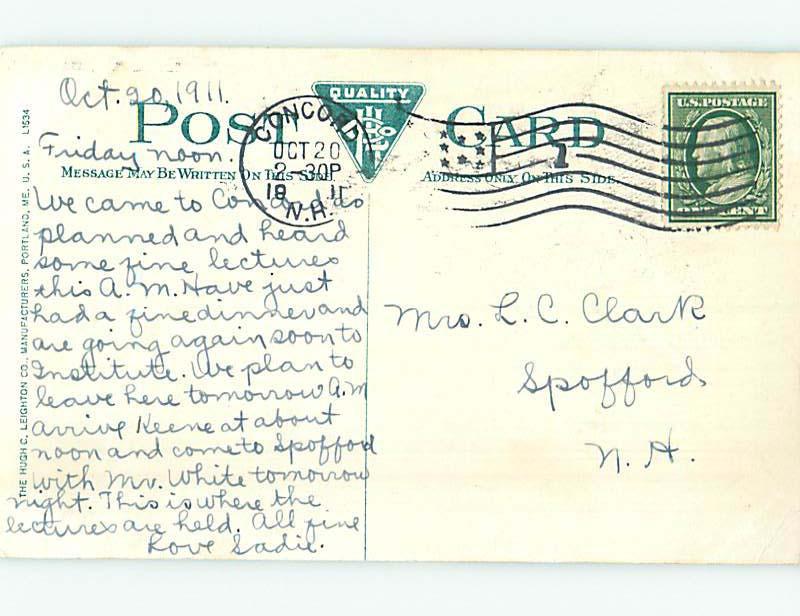 Oct. 20, 1911.
POST CARD
QUALITY
Friday noon.
MESSAGE MAY BE WRITTEN ON THIS SIDE.
ADDRESS ONLY ON THIS SIDE.
CONCORD
OCT 20
2 30P
1911
N.H.
1
U.S. POSTAGE
ONE CENT
We came to Concord as
planned and heard
some fine lectures
this A.M. Have just
had a fine dinner and
are going again soon to
Institute. We plan to
leave here tomorrow A.M
arrive Keene at about
noon and come to Spofford
with Mr. White tomorrow
night. This is where the
lectures are held. All fine
Love Sadie.
Mrs. L. C. Clark
Spofford
N. H.
THE HUGH C. LEIGHTON CO., MANUFACTURERS, PORTLAND, ME., U. S. A. L1534